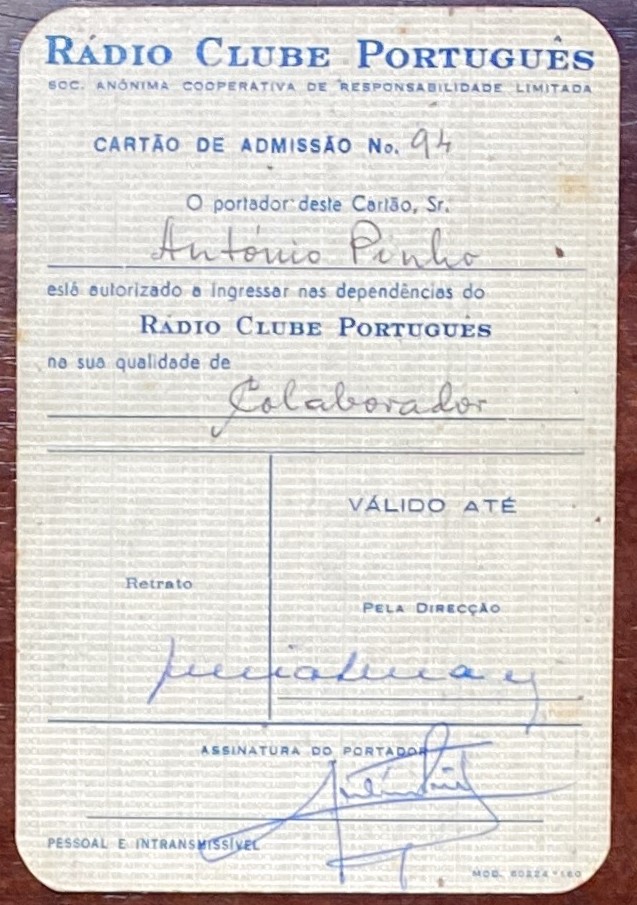 RÁDIO CLUBE PORTUGUÊS
SOC. ANÓNIMA COOPERATIVA DE RESPONSABILIDADE LIMITADA
CARTÃO DE ADMISSÃO No. 94
O portador deste Cartão, Sr.
António Pinho
está autorizado a ingressar nas dependências do
RÁDIO CLUBE PORTUGUÊS
na sua qualidade de
Colaborador
VÁLIDO ATÉ
Retrato
PELA DIRECÇÃO
ASSINATURA DO PORTADOR
PESSOAL E INTRANSMISSÍVEL
MOD. 60224